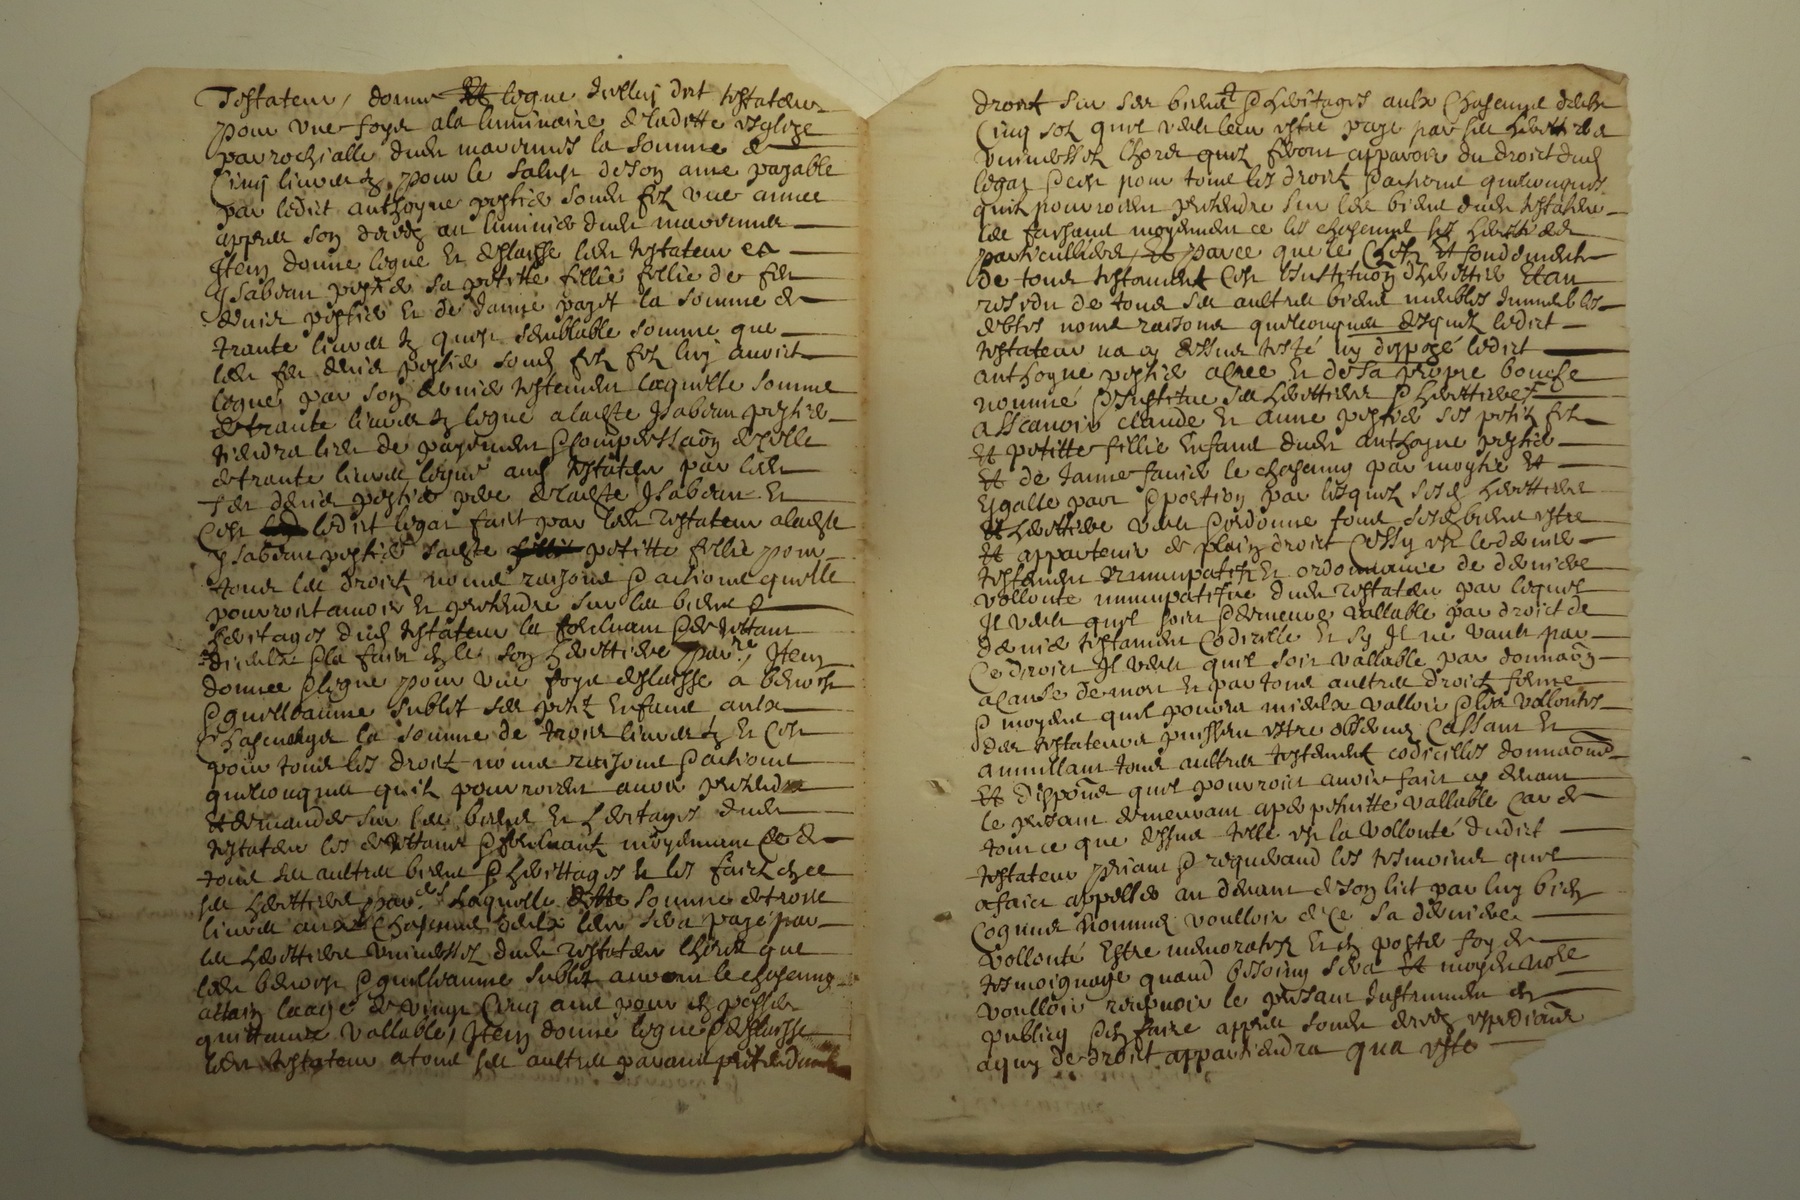 Testateur, donne legue icelluy dict testateur
pour une foys a la luminaire de laditte esglize
parrochialle dudit la somme de
Cinq livres tz pour le salut de son ame payable
par ledict anthoyne sondit filz une annee
apprès son decedz au luminier dudit
Item donne legue et deslaisse ledit testateur a
Ysabeau sa petitte fillie fillie de feu
et de Janne la somme de
trante livres tz quest semblable somme que
ledit feu sond filz luy avoict
legué par son dernier testement laquelle somme
de trante livres tz legue a ladite Isabeau
tiendra lieu de payement et compensaon de celle
de trante livres legue aud testateur par ledit
feu pere de ladite Isabeau et
Cest ledict legat faict par ledit testateur a ladite
Ysabeau sadite petitte fillie pour
tous les droictz noms raisons et actions quelle
pourroict avoir et prethendre sur les biens et
heritages dud testateur la
et la faict en ce son heritiere par.re, Item
donne et legue pour une foys deslaisse a benoist
et guilhaume sublet ses petitz enfans aulx
Chascungz la somme de trois livres tz et Cest
pour tous les droictz noms raisons et actions
quelconques quilz pourroient avoir prethendre
et demander sur les biens et heritages dudit
testateur les moyennant ce de
tous ses aultres biens et herittages et les faict en ce
ses herittiers par.res laquelle somme de trois
livres aux Chascungs deulx sera paye par
les herittiers universelz dudit testateur lhors que
ledit benoist et guilhaume sublet auront le chascung
attain laage de vingt Cinq ans pour en passer
quittance vallable, Item donne legue et deslaisse
ledit testateur a tous ses aultres parans prethendans
droict sur ses biens et heritages aulx Chascungs deulx
Cinq solz quil veult leur estre paye par ses herittiers
universelz lhors quilz feront apparoir du droict dud
legat et cest pour tous les droictz et actions quelconques
quilz pourroient prethendre sur les biens dudit testateur
les faisant moyennant ce les chascungs ses herittiers
particulliers, Et parce que le Chefz Et fondement
de tous testament Cest linstitution dherittier Et au
residu de tous ses aultres biens meubles immeubles
debtes noms raisons quelconques desquelz ledict
testateur na cy dessus testé ny disposé ledict
anthoyne a cree et de sa propre bouche
nommé et institue ses herittiers et herittieres
asscavoir claude et anne ses petitz filz
Et petitte fillie Enfans dudit anthoyne
Et de Janne le chascung par moytie Et
Esgalle part et portion par lesquelz sesd herittiers
Et herittiere veult et ordonne tous sesd biens estre
Et appartenir de plain droict Cessy est le dernier
testement nuncupatifz Et ordonnance de derniere
vollonté nuncupatifve dudit testateur par lequel
Il veult quil soit et demeure vallable par droict de
dernier testament Codicille Et sy Il ne vault par
Ce droict Il veult quil soit vallable par donnaon
a cause de mort Et par tous aultres droictz forme
et moyens quil pourra mieulx valloir et les vollontes
des testateurs puissent estre Cassant Et
annullant tous aultres testement codicilles donnaons
Et dispons quil pourroict avoir faict cy devant
le present demeurant vallable Car de
tout ce que dessus telle est la vollonté dudict
testateur priant et requerand les tesmoins quil
a faict appeller au devant de son lict par luy bien
Cognus nommes voulloir de Ce sa derniere
vollonté Estre memoratifz Et en porter foy de
tesmoignage quand besoing sera Et moyen not.re
voulloir recepvoir le present Instrument en
publicq et en faire apprès sondit decedz expedians
a quy de droict appartiendra qua este